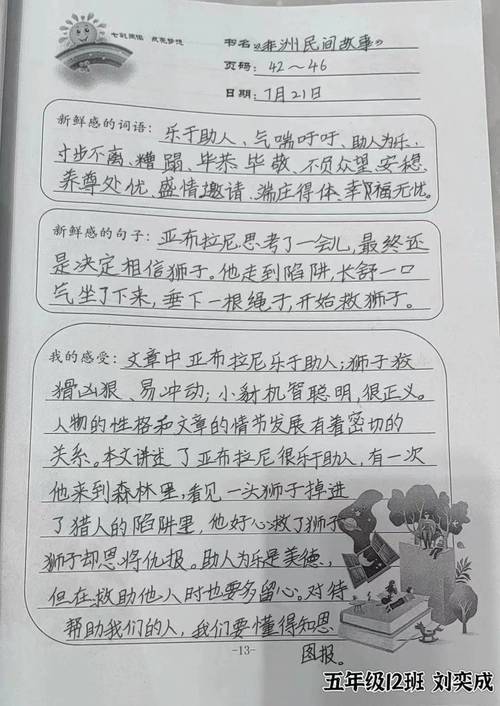 七彩阅读 点亮梦想
书名《非洲民间故事》
页码：42～46
日期：7月21日
新鲜感的词语：乐于助人、气喘吁吁、助人为乐、
寸步不离、糟蹋、毕恭毕敬、不负众望、安稳、
养尊处优、盛情邀请、端庄得体、幸福无忧。
新鲜感的句子：亚布拉尼思考了一会儿，最终还
是决定相信狮子。他走到陷阱，长舒一口
气坐了下来，垂下一根绳子，开始救狮子。
我的感受：文章中亚布拉尼乐于助人；狮子狡
猾凶狠、易冲动；小豺机智聪明，很正义。
人物的性格和文章的情节发展有着密切的
关系。本文讲述了亚布拉尼很乐于助人，有一次
他来到森林里，看见一头狮子掉进
了猎人的陷阱里，他好心救了狮子，
狮子却恩将仇报。助人为乐是美德，
但在救助他人时也要多留心。对待
帮助我们的人，我们要懂得知恩
图报。
-13-
五年级12班 刘奕成